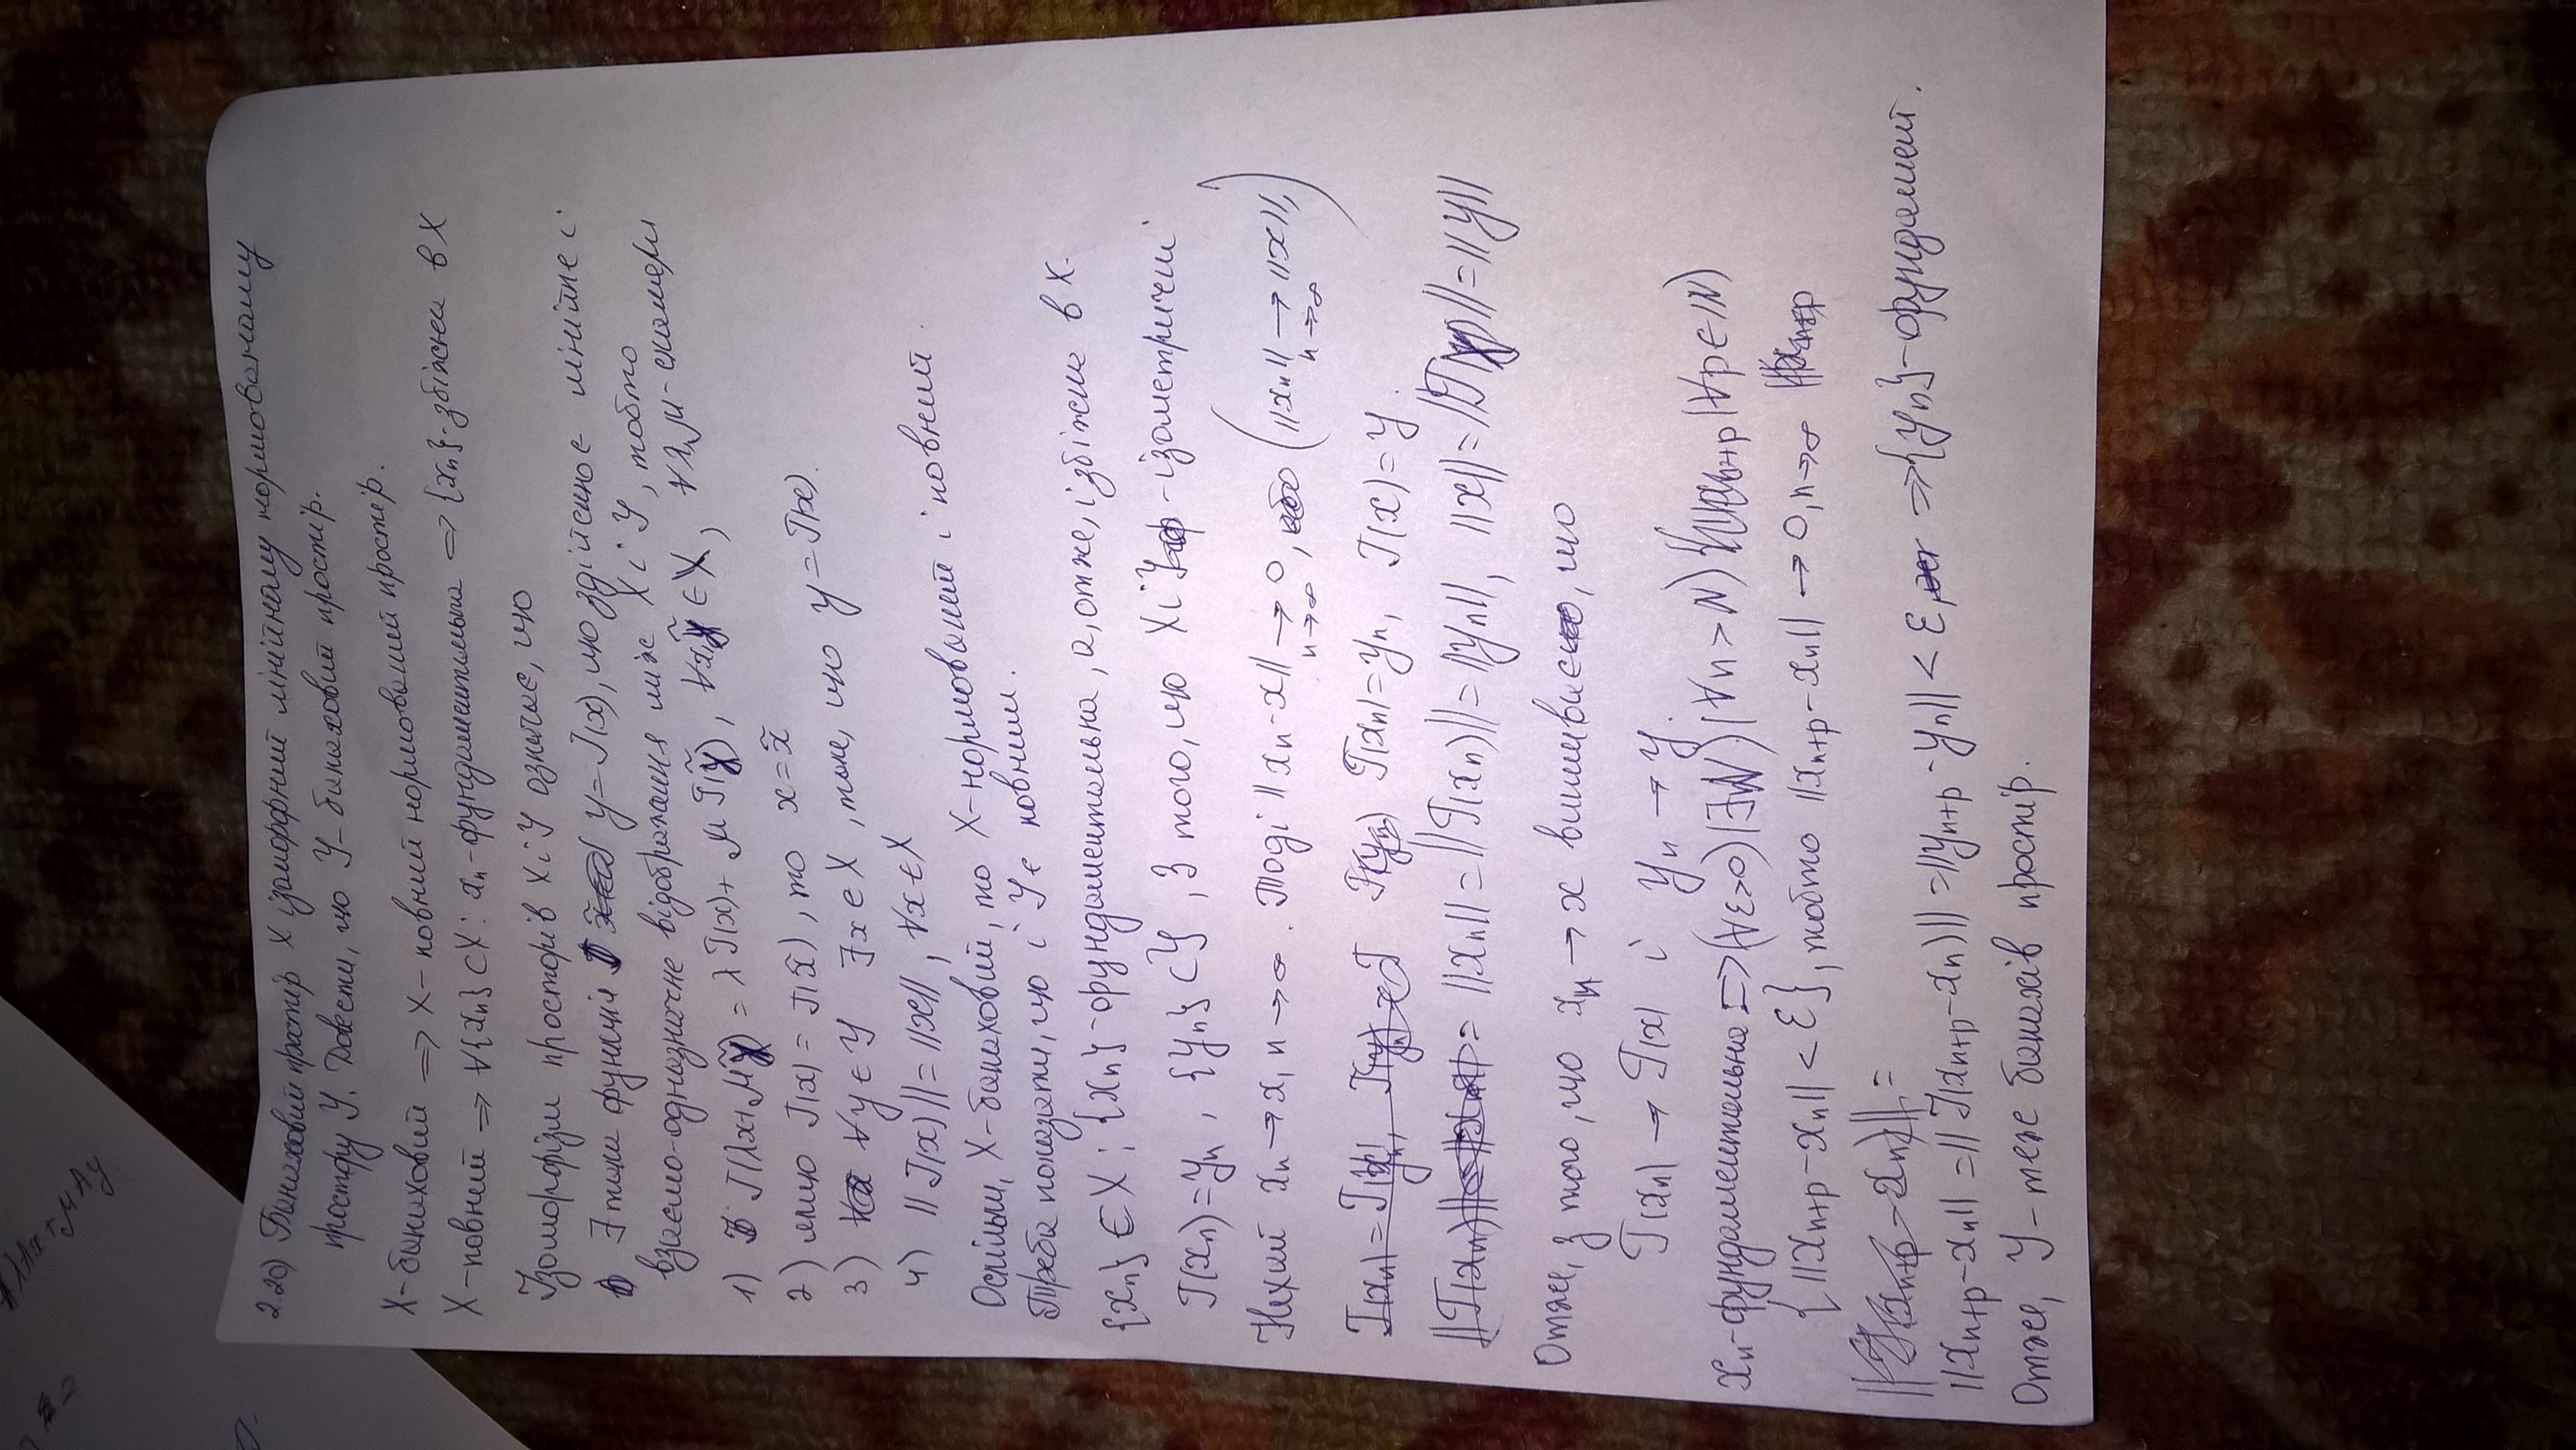 λAx + μAy
2.20) Банаховий простір X ізоморфний лінійному нормованому
простору Y. Довести, що Y - банаховий простір.
X - банаховий ⇒ X - повний нормований простір.
X - повний ⇒ ∀{xₙ} ⊂ X : xₙ - фундаментальна ⇒ {xₙ} - збіжна в X
Ізоморфізм просторів X і Y означає, що
∃ така функція y = J(x), що здійснює лінійне і
взаємо-однозначне відображення між X і Y, тобто
1) J(λx + μỹ) = λJ(x) + μJ(ỹ), ∀x, ỹ ∈ X, ∀λ, μ - скаляри
2) якщо J(x) = J(x̃), то x = x̃
3) ∀y ∈ Y ∃x ∈ X, таке, що y = J(x).
4) ||J(x)|| = ||x||, ∀x ∈ X
Оскільки, X - банаховий, то X - нормований і повний.
Треба показати, що і Y є повним.
{xₙ} ∈ X ; {xₙ} - фундаментальна, а, отже, і збіжна в X.
J(xₙ) = yₙ, {yₙ} ⊂ Y, З того, що X і Y - ізометричні
Нехай xₙ → x, n → ∞. Тоді ||xₙ - x|| → 0, n→∞ (||xₙ|| → ||x||, n→∞)
J(xₙ) = yₙ, J(x) = y.
= ||xₙ|| = ||J(xₙ)|| = ||yₙ||, ||x|| = ||J(x)|| = ||y||
Отже, з того, що xₙ → x випливає, що
J(xₙ) → J(x) і yₙ → y.
xₙ - фундаментальна ⇒ (∀ε>0) (∃N) (∀n > N) (∀p ∈ ℕ)
{||xₙ₊ₚ - xₙ|| < ε}, тобто ||xₙ₊ₚ - xₙ|| → 0, n→∞
||xₙ₊ₚ - xₙ|| = ||J(xₙ₊ₚ - xₙ)|| = ||yₙ₊ₚ - yₙ|| < ε, ⇒ {yₙ} - фундамент.
Отже, Y - теж банахів простір.